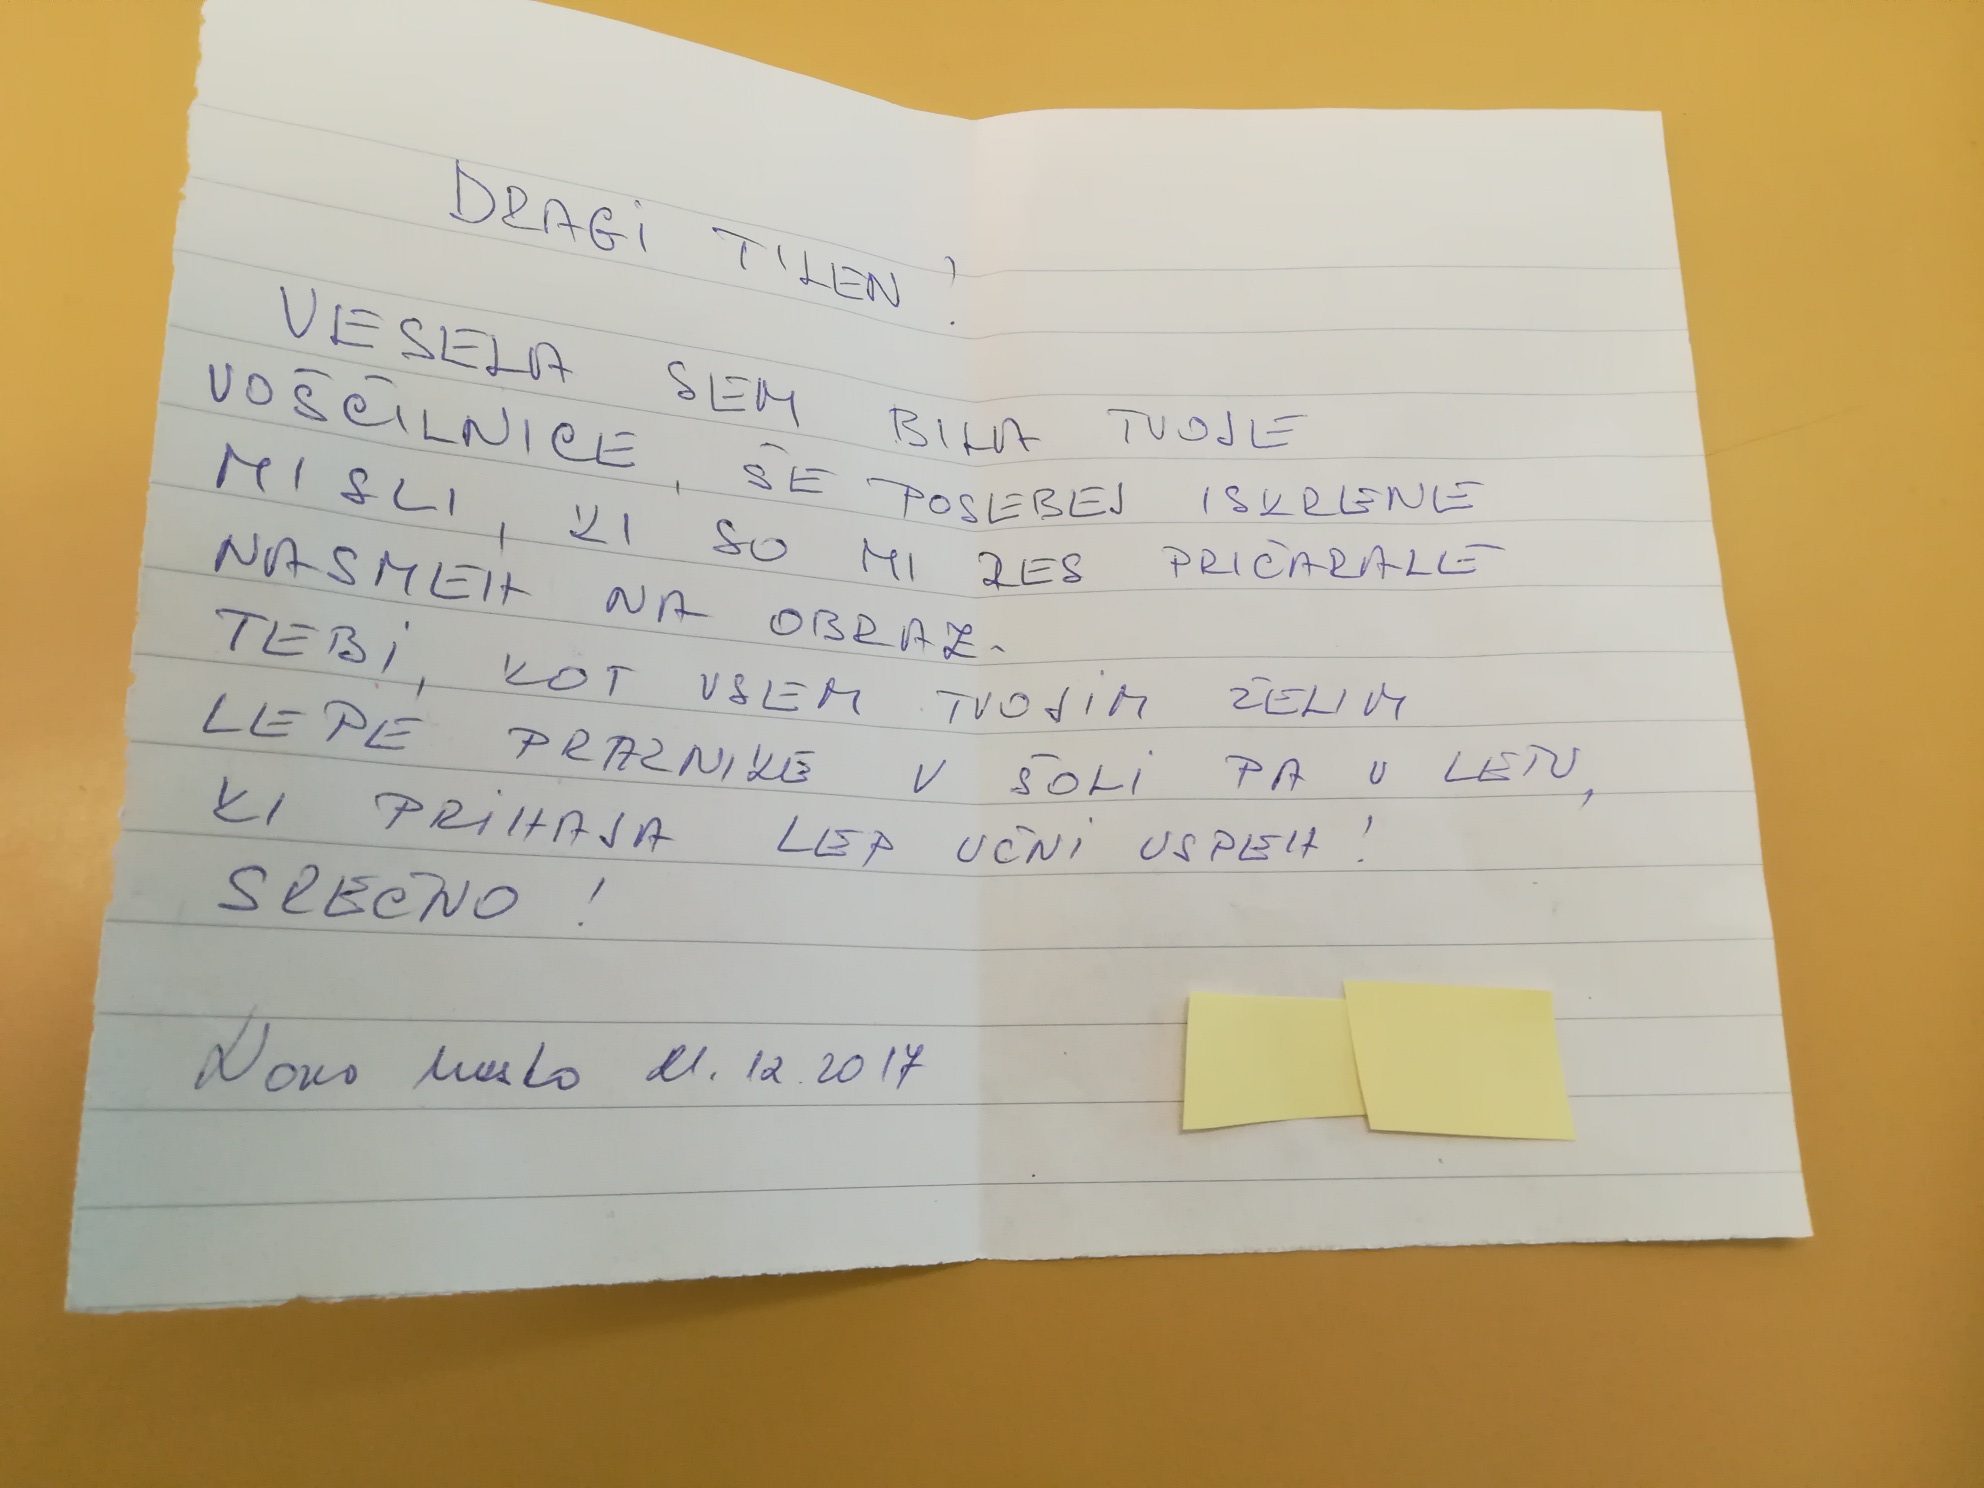 DRAGI TILEN!
VESELA SEM BILA TVOJE
VOŠČILNICE, ŠE POSEBEJ ISKRENE
MISLI, KI SO MI RES PRIČARALE
NASMEH NA OBRAZ.
TEBI, KOT VSEM TVOJIM ŽELIM
LEPE PRAZNIKE V ŠOLI PA V LETU,
KI PRIHAJA LEP UČNI USPEH!
SREČNO!
Novo mesto 21.12.2017